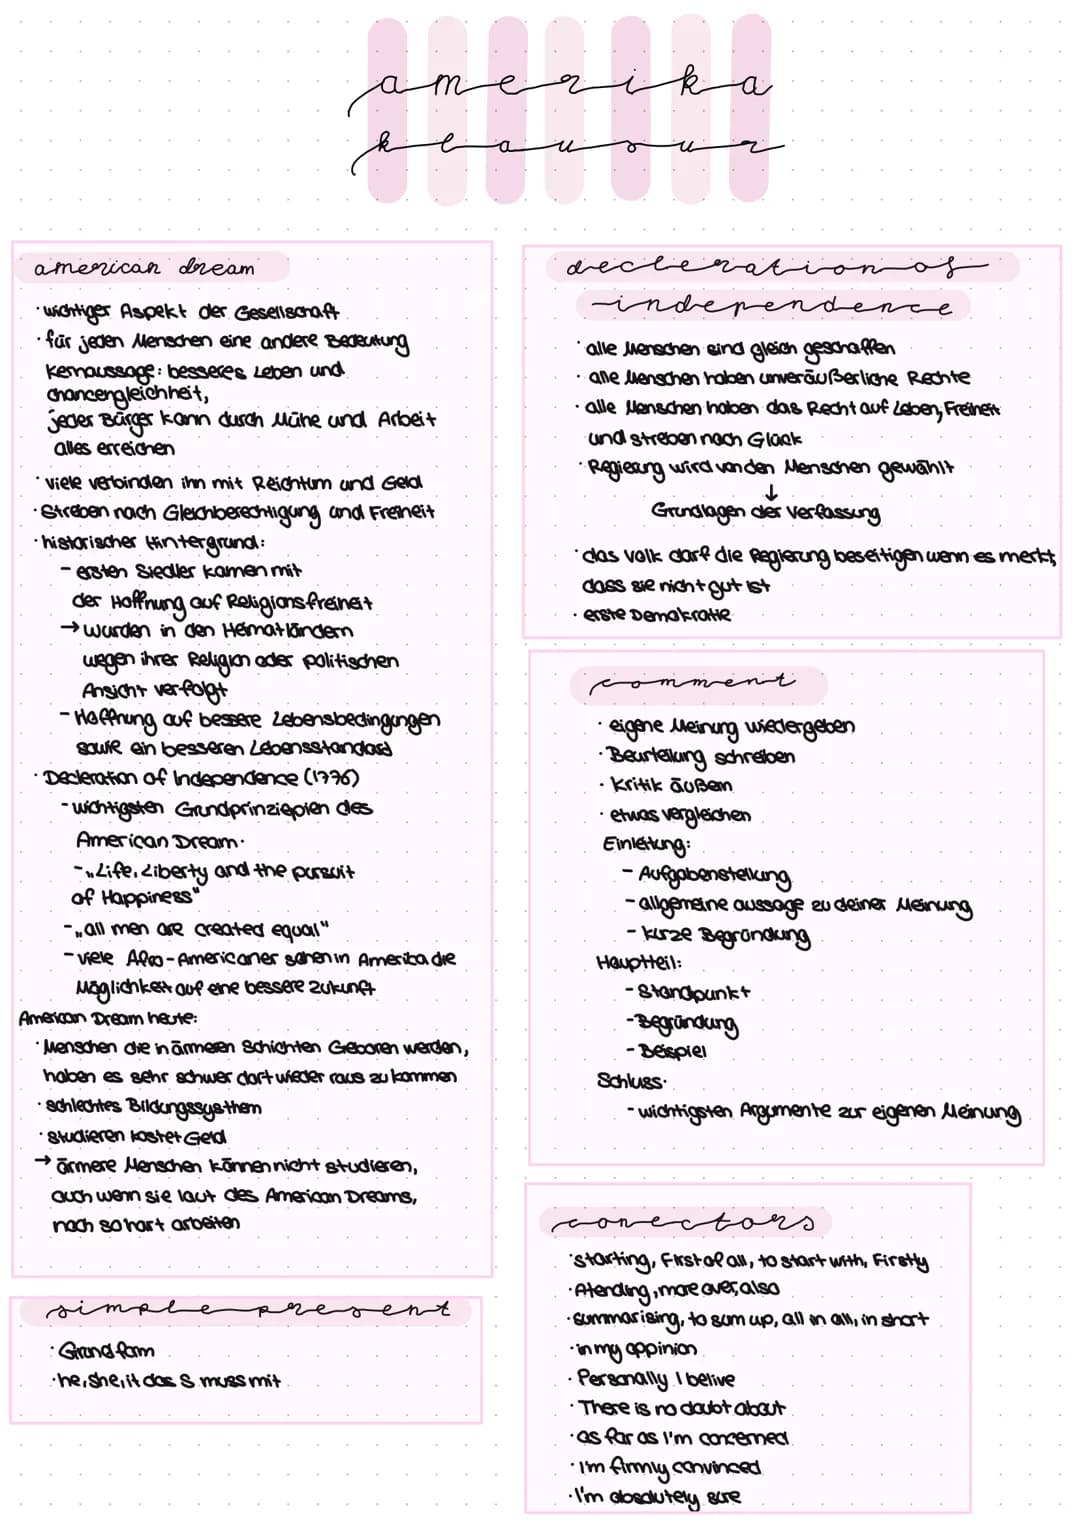 amerika
klausur
american dream
· wichtiger Aspekt der Gesellschaft
· für jeden Menschen eine andere Bedeutung
Kernaussage: besseres Leben und
chancengleichheit,
jeder Bürger kann durch Mühe und Arbeit
alles erreichen
· viele verbinden ihn mit Reichtum und Geld
· Streben nach Gleichberechtigung und Freiheit
· historischer Hintergrund:
- ersten Siedler kamen mit
der Hoffnung auf Religionsfreiheit
→ wurden in den Heimatländern
wegen ihrer Religion oder politischen
Ansicht verfolgt
- Hoffnung auf bessere Lebensbedingungen
sowie ein besseren Lebensstandard
· Decleration of Independence (1776)
- wichtigsten Grundprinziepien des
American Dream.
- „Life, Liberty and the pursuit
of Happiness"
- „all men are created equal"
- viele Afro-Americaner sahen in Amerika die
Möglichkeit auf eine bessere Zukunft
American Dream heute:
· Menschen die in ärmeren Schichten Geboren werden,
haben es sehr schwer dort wieder raus zu kommen
· schlechtes Bildungssysthem
· studieren kostet Geld
→ ärmere Menschen können nicht studieren,
auch wenn sie laut des American Dreams,
noch so hart arbeiten
simple present
· Grundform
· he, she, it das S muss mit
decleration of
independence
· alle Menschen sind gleich geschaffen
· alle Menschen haben unveräußerliche Rechte
· alle Menschen haben das Recht auf Leben, Freiheit
und streben nach Glück
· Regierung wird von den Menschen gewählt
↓
Grundlagen der Verfassung
· das Volk darf die Regierung beseitigen wenn es merkt,
dass sie nicht gut ist
· erste Demokratie
comment
· eigene Meinung wiedergeben
· Beurteilung schreiben
· Kritik äußern
· etwas vergleichen
Einleitung:
- Aufgabenstellung
- allgemeine aussage zu deiner Meinung
- kurze Begründung
Hauptteil:
- Standpunkt
- Begründung
- Beispiel
Schluss·
- wichtigsten Argumente zur eigenen Meinung
conectors
· starting, First of all, to start with, Firstly
· Atending, more over, also
· summarising, to sum up, all in all, in short
· in my oppinion
· Personally I belive
· There is no doubt about
· as far as I'm concerned
· I'm firmly convinced
· I'm absolutely sure